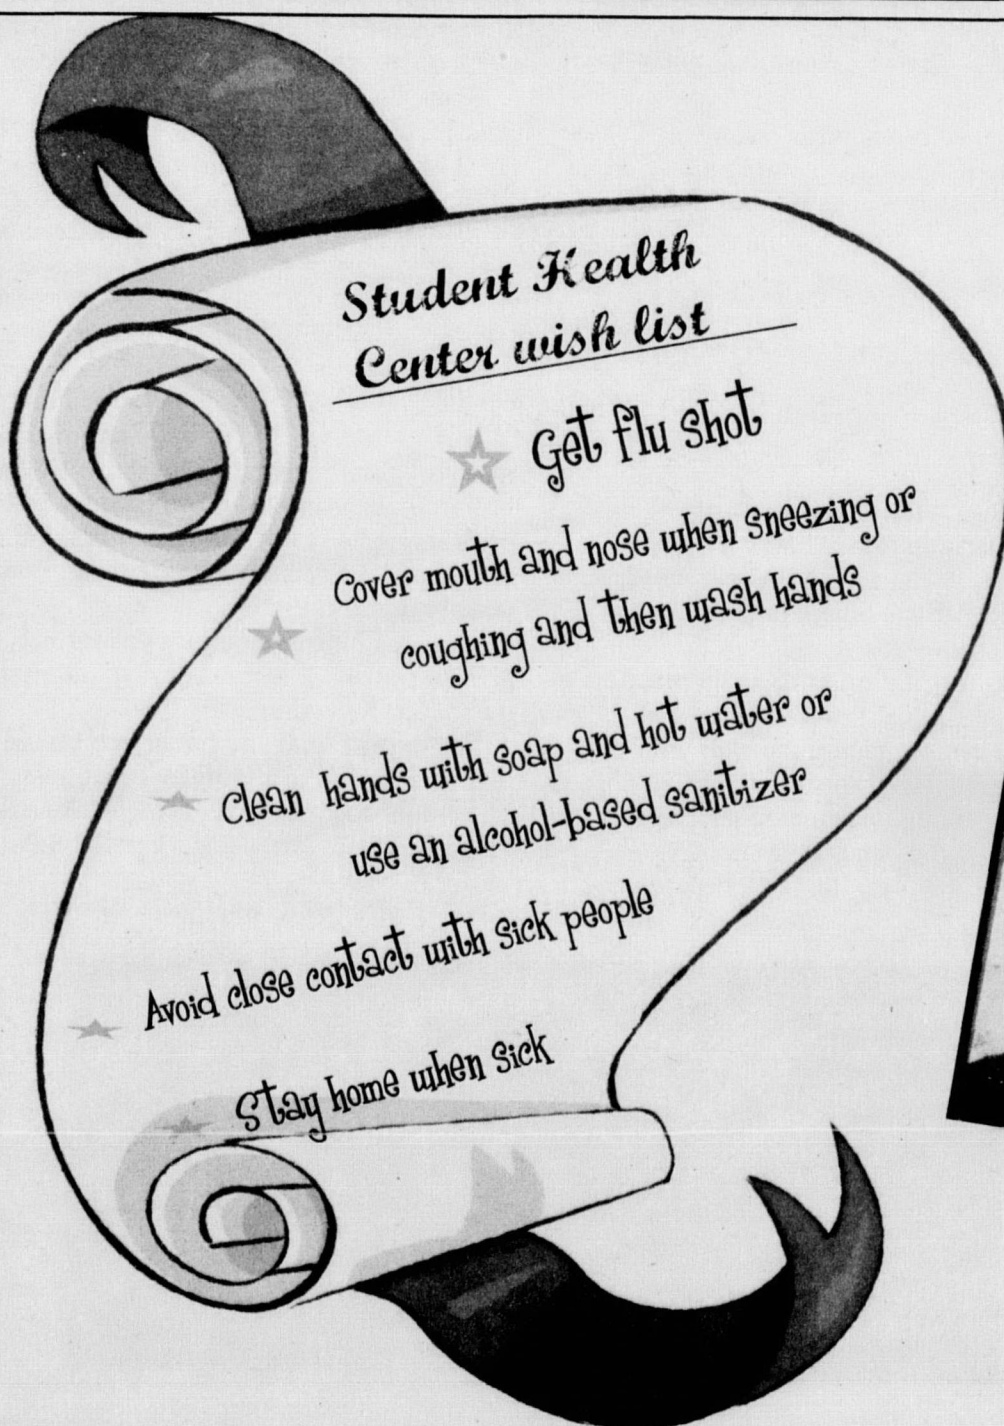 Student Health
Center wish list
Get flu shot
Cover mouth and nose when sneezing or
coughing and then wash hands
Clean hands with soap and hot water or
use an alcohol-based sanitizer
Avoid close contact with sick people
Stay home when sick